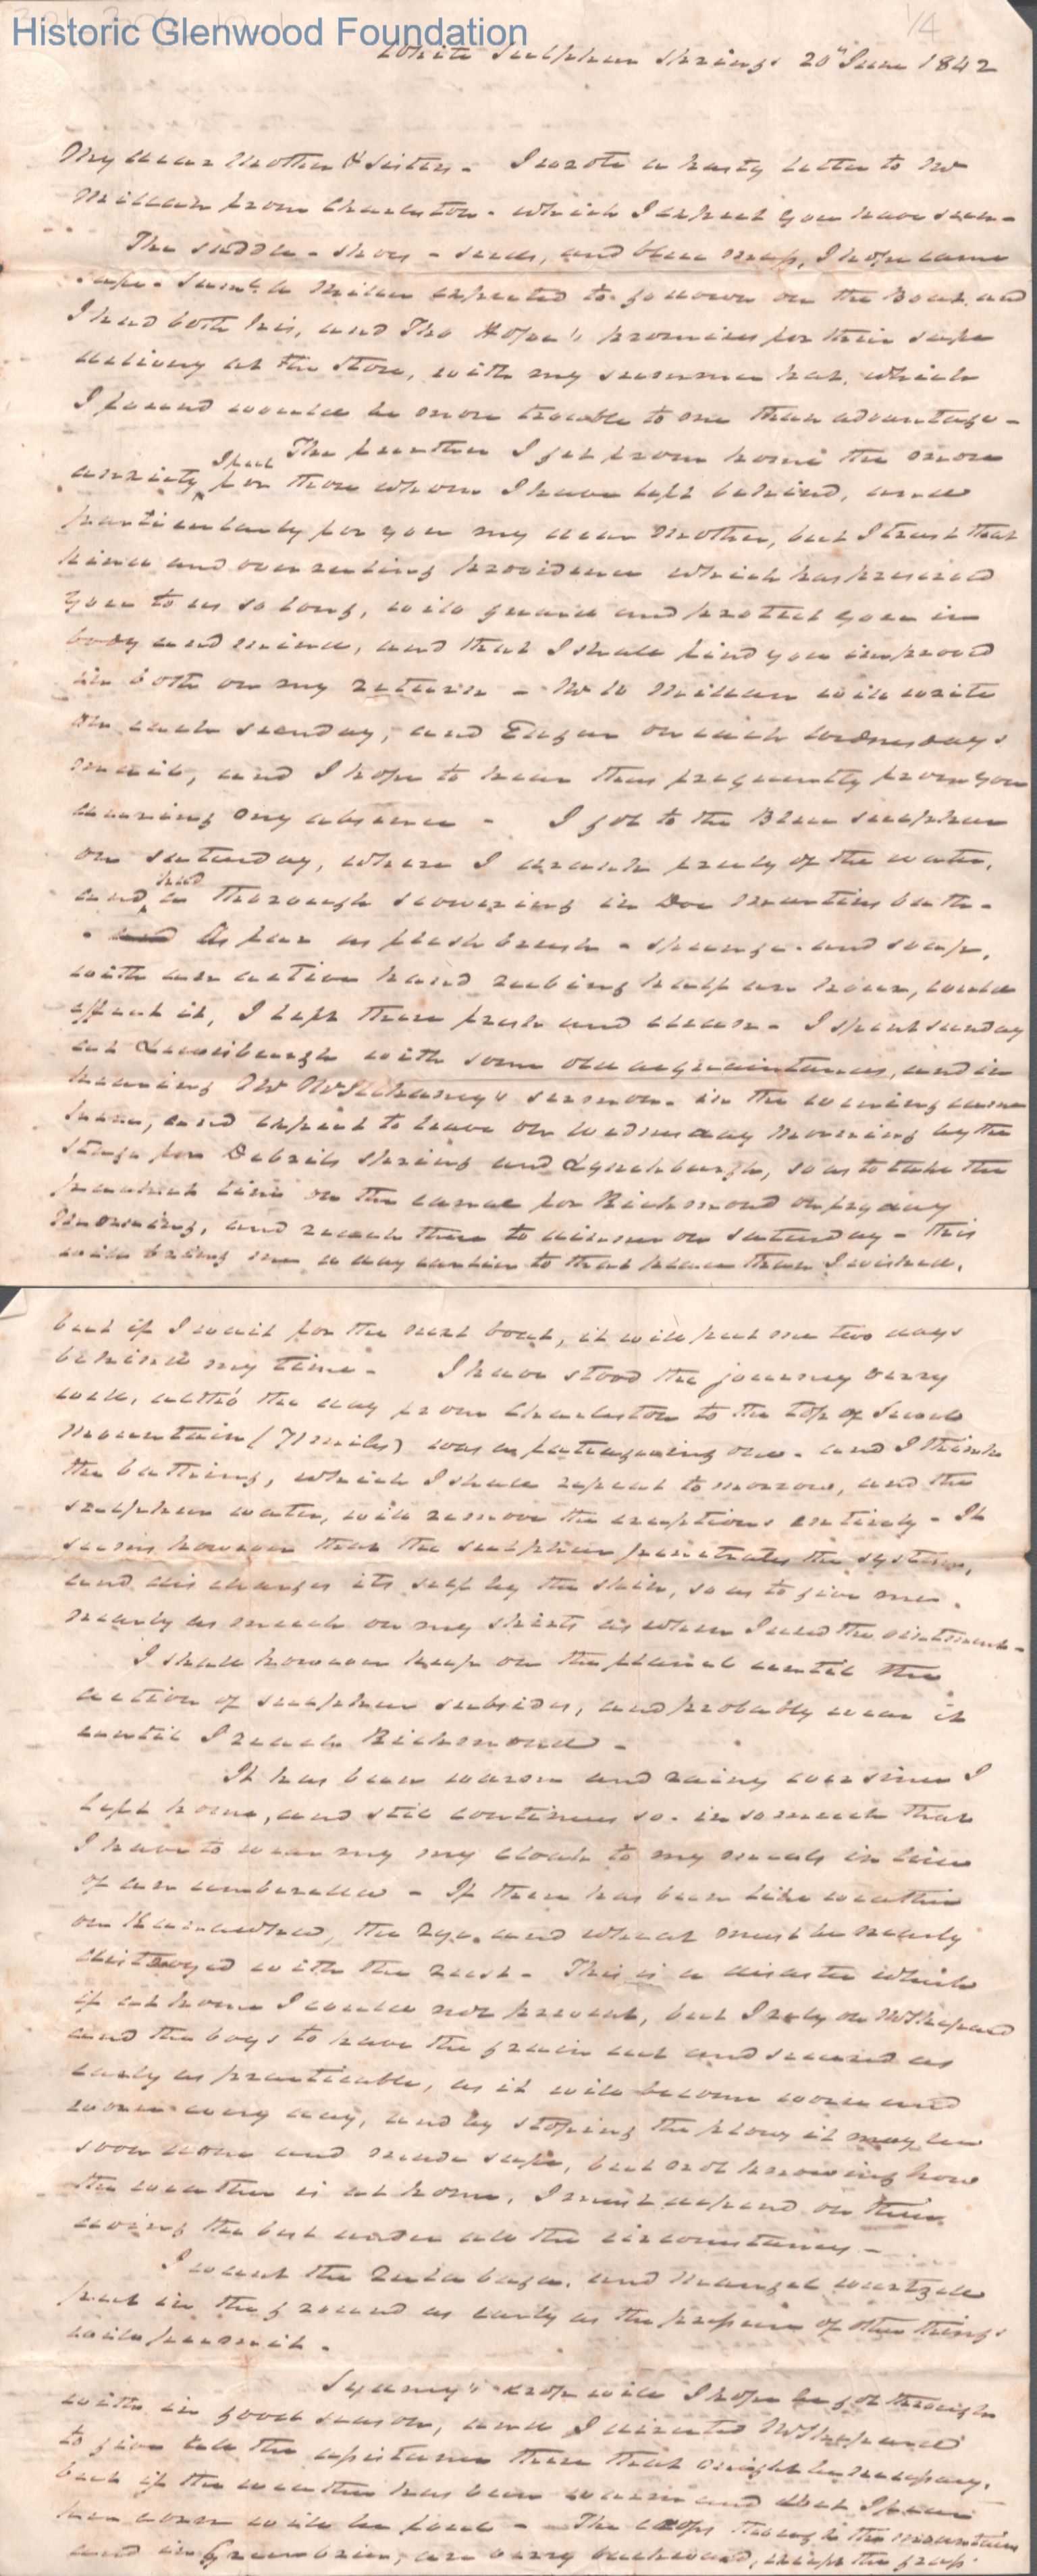 Historic Glenwood Foundation
1/4
White Sulphur Springs 20th June 1842
My dear Mother & Sister - I wrote a hasty letter to Mr
Millan from Charleston - which I expect you have seen -
The saddle - shoes - seeds, and blue map, I hope came
safe - Miller expected to go down on the Boat and
I had both his, and Tho Hope's promises for their safe
delivery at the Store, with my summer hat, which
I found would be more trouble to me than advantage -
The further I get from home the more
anxiety I feel for those whom I have left behind, and
particularly for you my dear Mother, but I trust that
kind and overruling providence which has preserved
you to us so long, will guard and protect you in
body and mind, and that I shall find you improved
in both on my return - Mr Millan will write
on each sunday, and on each Wednesdays
mail, and I hope to hear thus frequently from you
during my absence - I got to the Blue Sulphur
on saturday, where I drank freely of the water,
and had a thorough scowering in Doc Martins bath -
- and As far as flesh brush - spunge - and soap,
with an active hand rubing half an hour, could
effect it, I left there fresh and clean - I spent sunday
at Lewisburgh with some old acquaintances, and in
hearing Mr McElhaney's sermon - in the evening came
here, and expect to leave on wednesday morning by the
stage for Dibrils spring and Lynchburgh, so as to take the
packet line on the canal for Richmond on fryday
morning, and reach there to dinner on saturday - this
will bring me a day earlier to that place than I wished,
but if I wait for the next boat, it will put me two days
behind my time - I have stood the journey very
well, altho the day from Charleston to the top of Sewel
Mountain (71 miles) was a fatagueing one - and I think
the bathing, which I shall repeat tomorrow, and the
sulphur water, will remove the eruptions entirely - It
seems however that the sulphur penetrates the system,
and discharges its self by the skin, so as to give me
nearly as much on my shirts as when I used the ointment -
I shall however keep on the flanel until the
action of sulphur subsides, and probably wear it
until I reach Richmond -
It has been warm and rainy ever since I
left home, and still continues so - in so much that
I have to wear my my cloak to my meals in lieu
of an umberella - If there has been like weather
on Kanawha, the rye and wheat must be nearly
distroyed with the rust - This is a disaster which
if at home I could not prevent, but I rely on Mr Shepard
and the boys to have the grain cut and secured as
early as practicable, as it will become worse and
worse every day, and by stoping the plows it may be
soon done and made safe, but not knowing how
the weather is at home, I must depend on their
doing the best under all the circumstances -
I want the Ruta baga, and Mangel wurtzle
put in the ground as early as the pressure of other things
will permit -
Sydney's crop will I hope be got through
with in good season, and I directed Mr Shepard
to give all the assistance there that might be necessary,
but if the weather has been warm and wet I fear
her corn will be foul - The crops through the mountains
and in Greenbrier, are very backward, except the grass